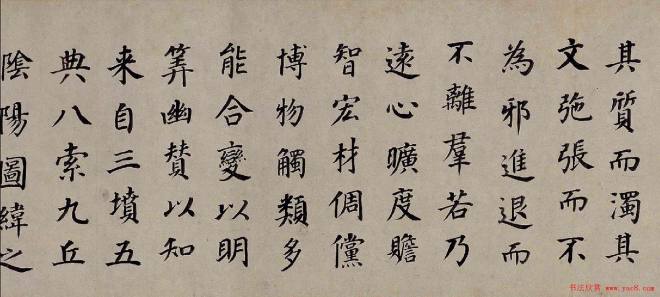 其質而濁其
文弛張而不
為邪進退而
不離羣若乃
遠心曠度贍
智宏材倜儻
博物觸類多
能合變以明
筭幽贊以知
来自三墳五
典八索九丘
陰陽圖緯之
书法欣赏
www.yac8.com